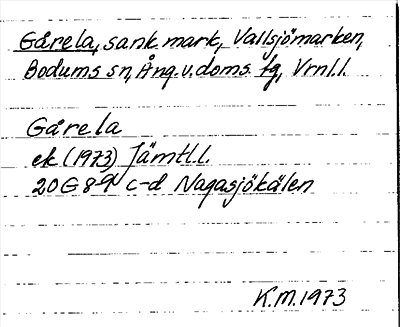 Gårela, sank mark, Vallsjömarken,
Bodums sn, Ång. v. doms. fg, Vrnl.l.
Gårela
ek (1973) Jämtl.l.
20G 8-9 c-d Nagasjökälen
K.M. 1973